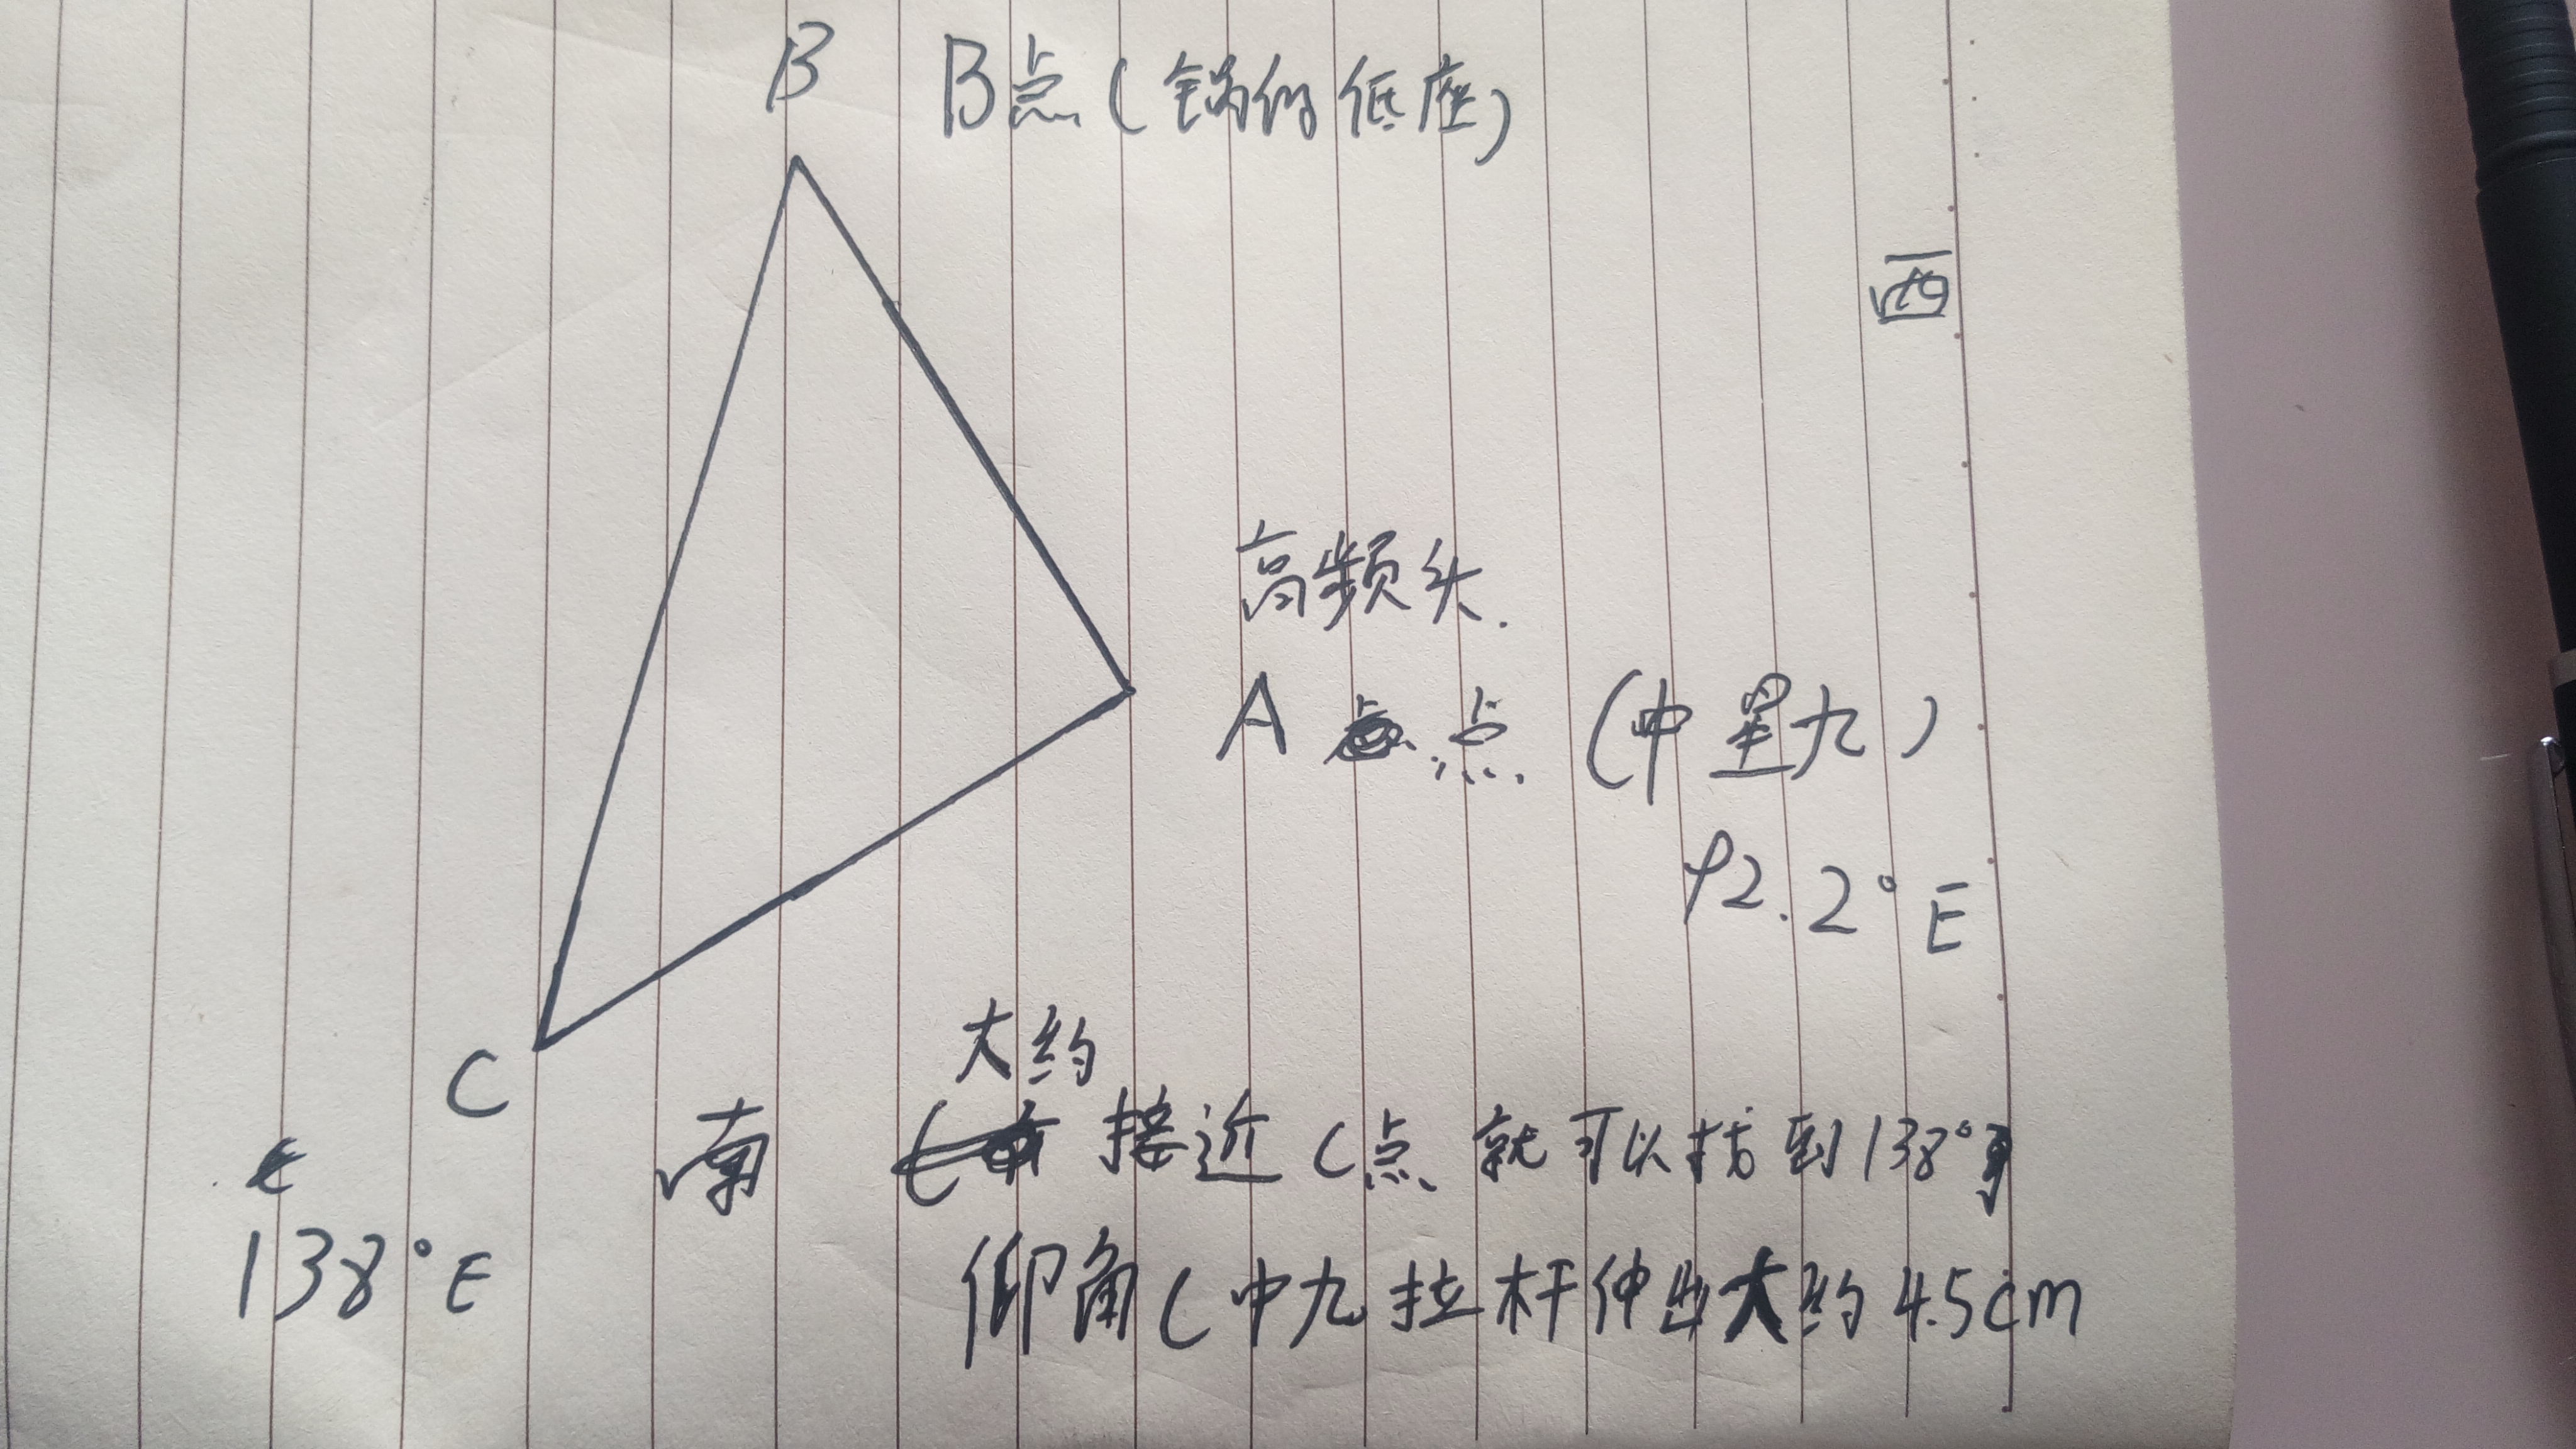 B B点(锅的低座)
西
高频头.
A 点 (中星九)
92.2°E
C
大约
南 接近C点就可以找到138°
138°E
仰角(中九拉杆伸出大约4.5cm